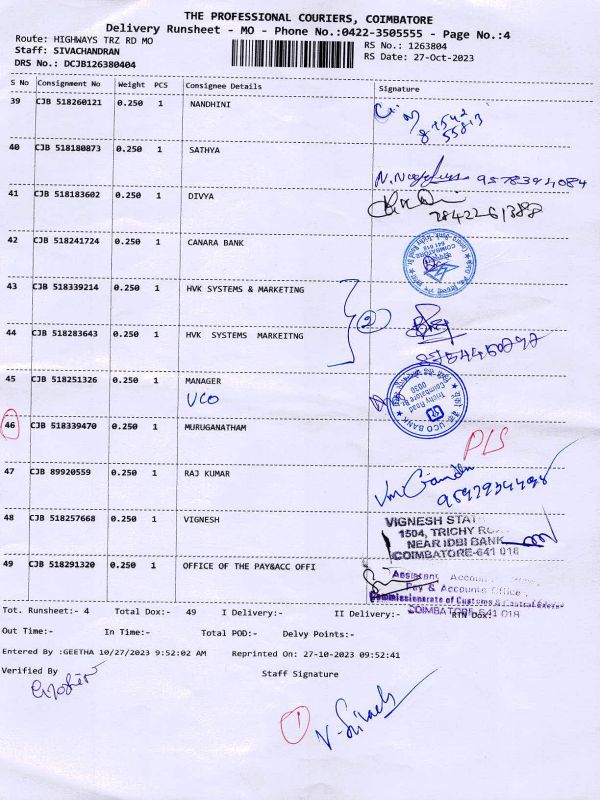 THE PROFESSIONAL COURIERS, COIMBATORE
Delivery Runsheet - MO - Phone No.:0422-3505555 - Page No.:4
Route: HIGHWAYS TRZ RD MO
RS No.: 1263804
Staff: SIVACHANDRAN
RS Date: 27-Oct-2023
DRS No.: DCJB126380404
S No Consignment No Weight PCS Consignee Details Signature
39 CJB 518260121 0.250 1 NANDHINI
40 CJB 518180873 0.250 1 SATHYA
9578394084
41 CJB 518183602 0.250 1 DIVYA
42 CJB 518241724 0.250 1 CANARA BANK
43 CJB 518339214 0.250 1 HVK SYSTEMS & MARKETING
2
44 CJB 518283643 0.250 1 HVK SYSTEMS MARKEITNG
45 CJB 518251326 0.250 1 MANAGER
UCO
UCO BANK
Trichy Road
46 CJB 518339470 0.250 1 MURUGANATHAM
47 CJB 89920559 0.250 1 RAJ KUMAR
48 CJB 518257668 0.250 1 VIGNESH
VIGNESH
1504, TRICHY
NEAR IDBI BANK
COIMBATORE-641 018
49 CJB 518291320 0.250 1 OFFICE OF THE PAY&ACC OFFI
Assistant
Pay & Accounts Office,
Commissionerate of Customs & Central Excise
COIMBATORE-641 018
Tot. Runsheet:- 4 Total Dox:- 49 I Delivery:- II Delivery:- RTN Dox:
Out Time:- In Time:- Total POD:- Delvy Points:-
Entered By :GEETHA 10/27/2023 9:52:02 AM Reprinted On: 27-10-2023 09:52:41
Verified By
Staff Signature
1